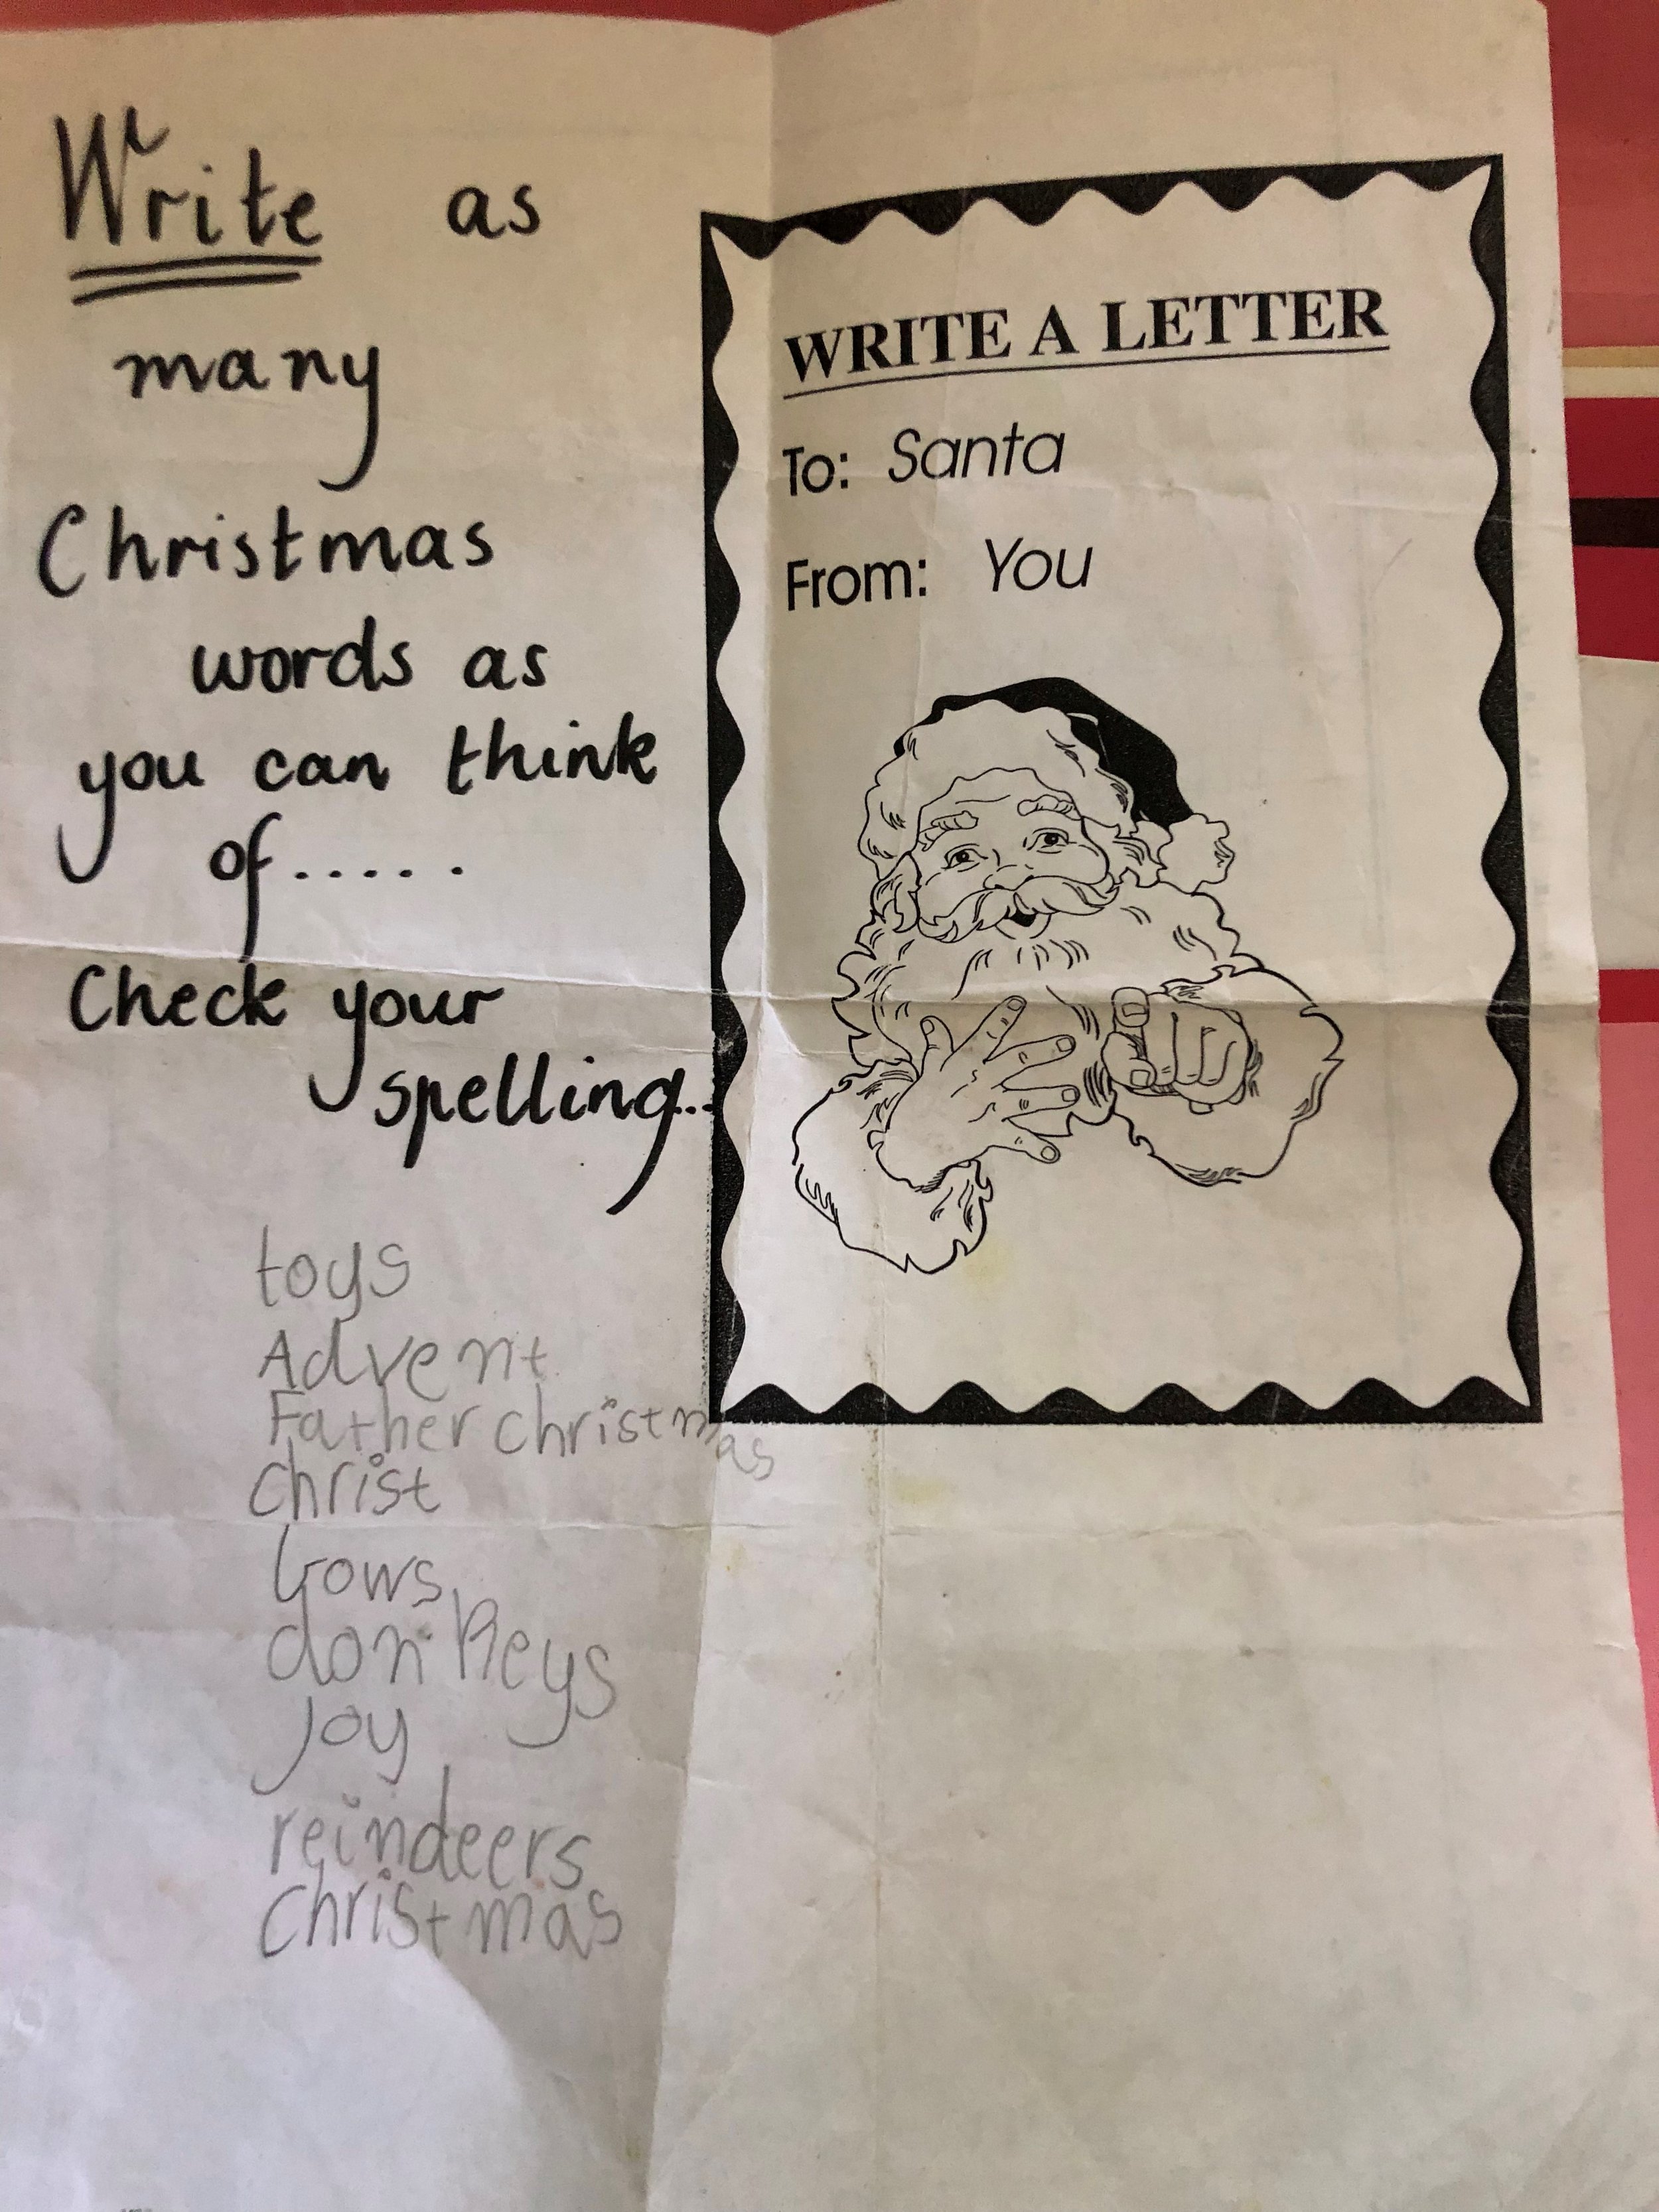 Write as
many
Christmas
words as
you can think
of.....
Check your
spelling...
WRITE A LETTER
To: Santa
From: You
toys
Advent
Father christmas
christ
bows
donkeys
joy
reindeers
christmas